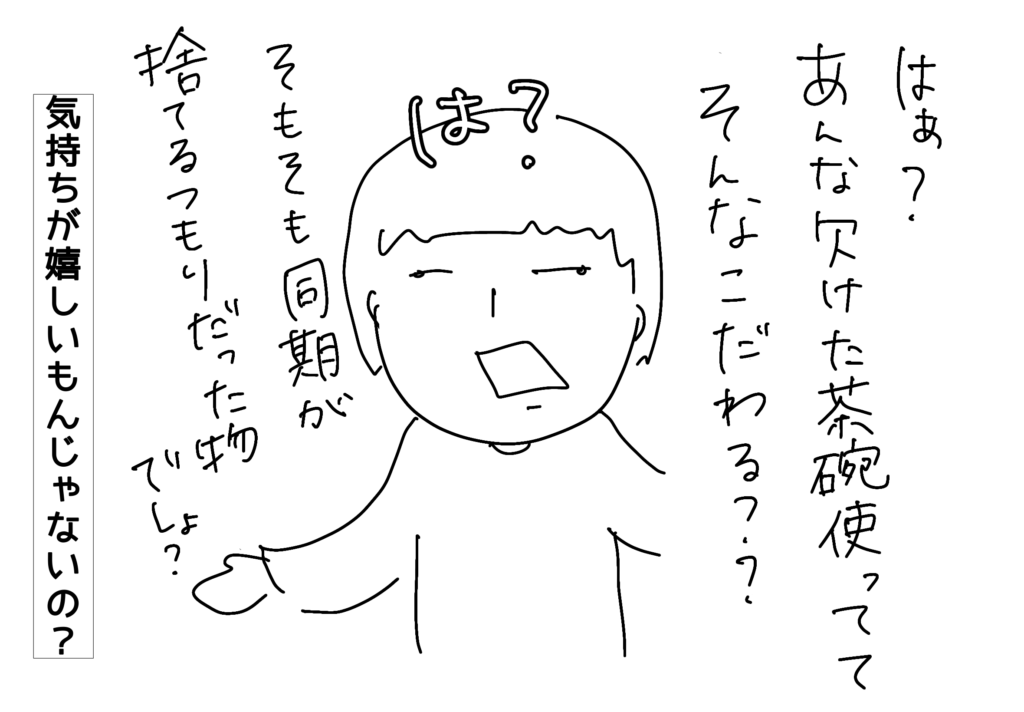 はぁ？
あんな欠けた茶碗使ってて
そんなこだわる？？
は？
そもそも同期が
捨てるつもりだった物
でしょ？
気持ちが嬉しいもんじゃないの？